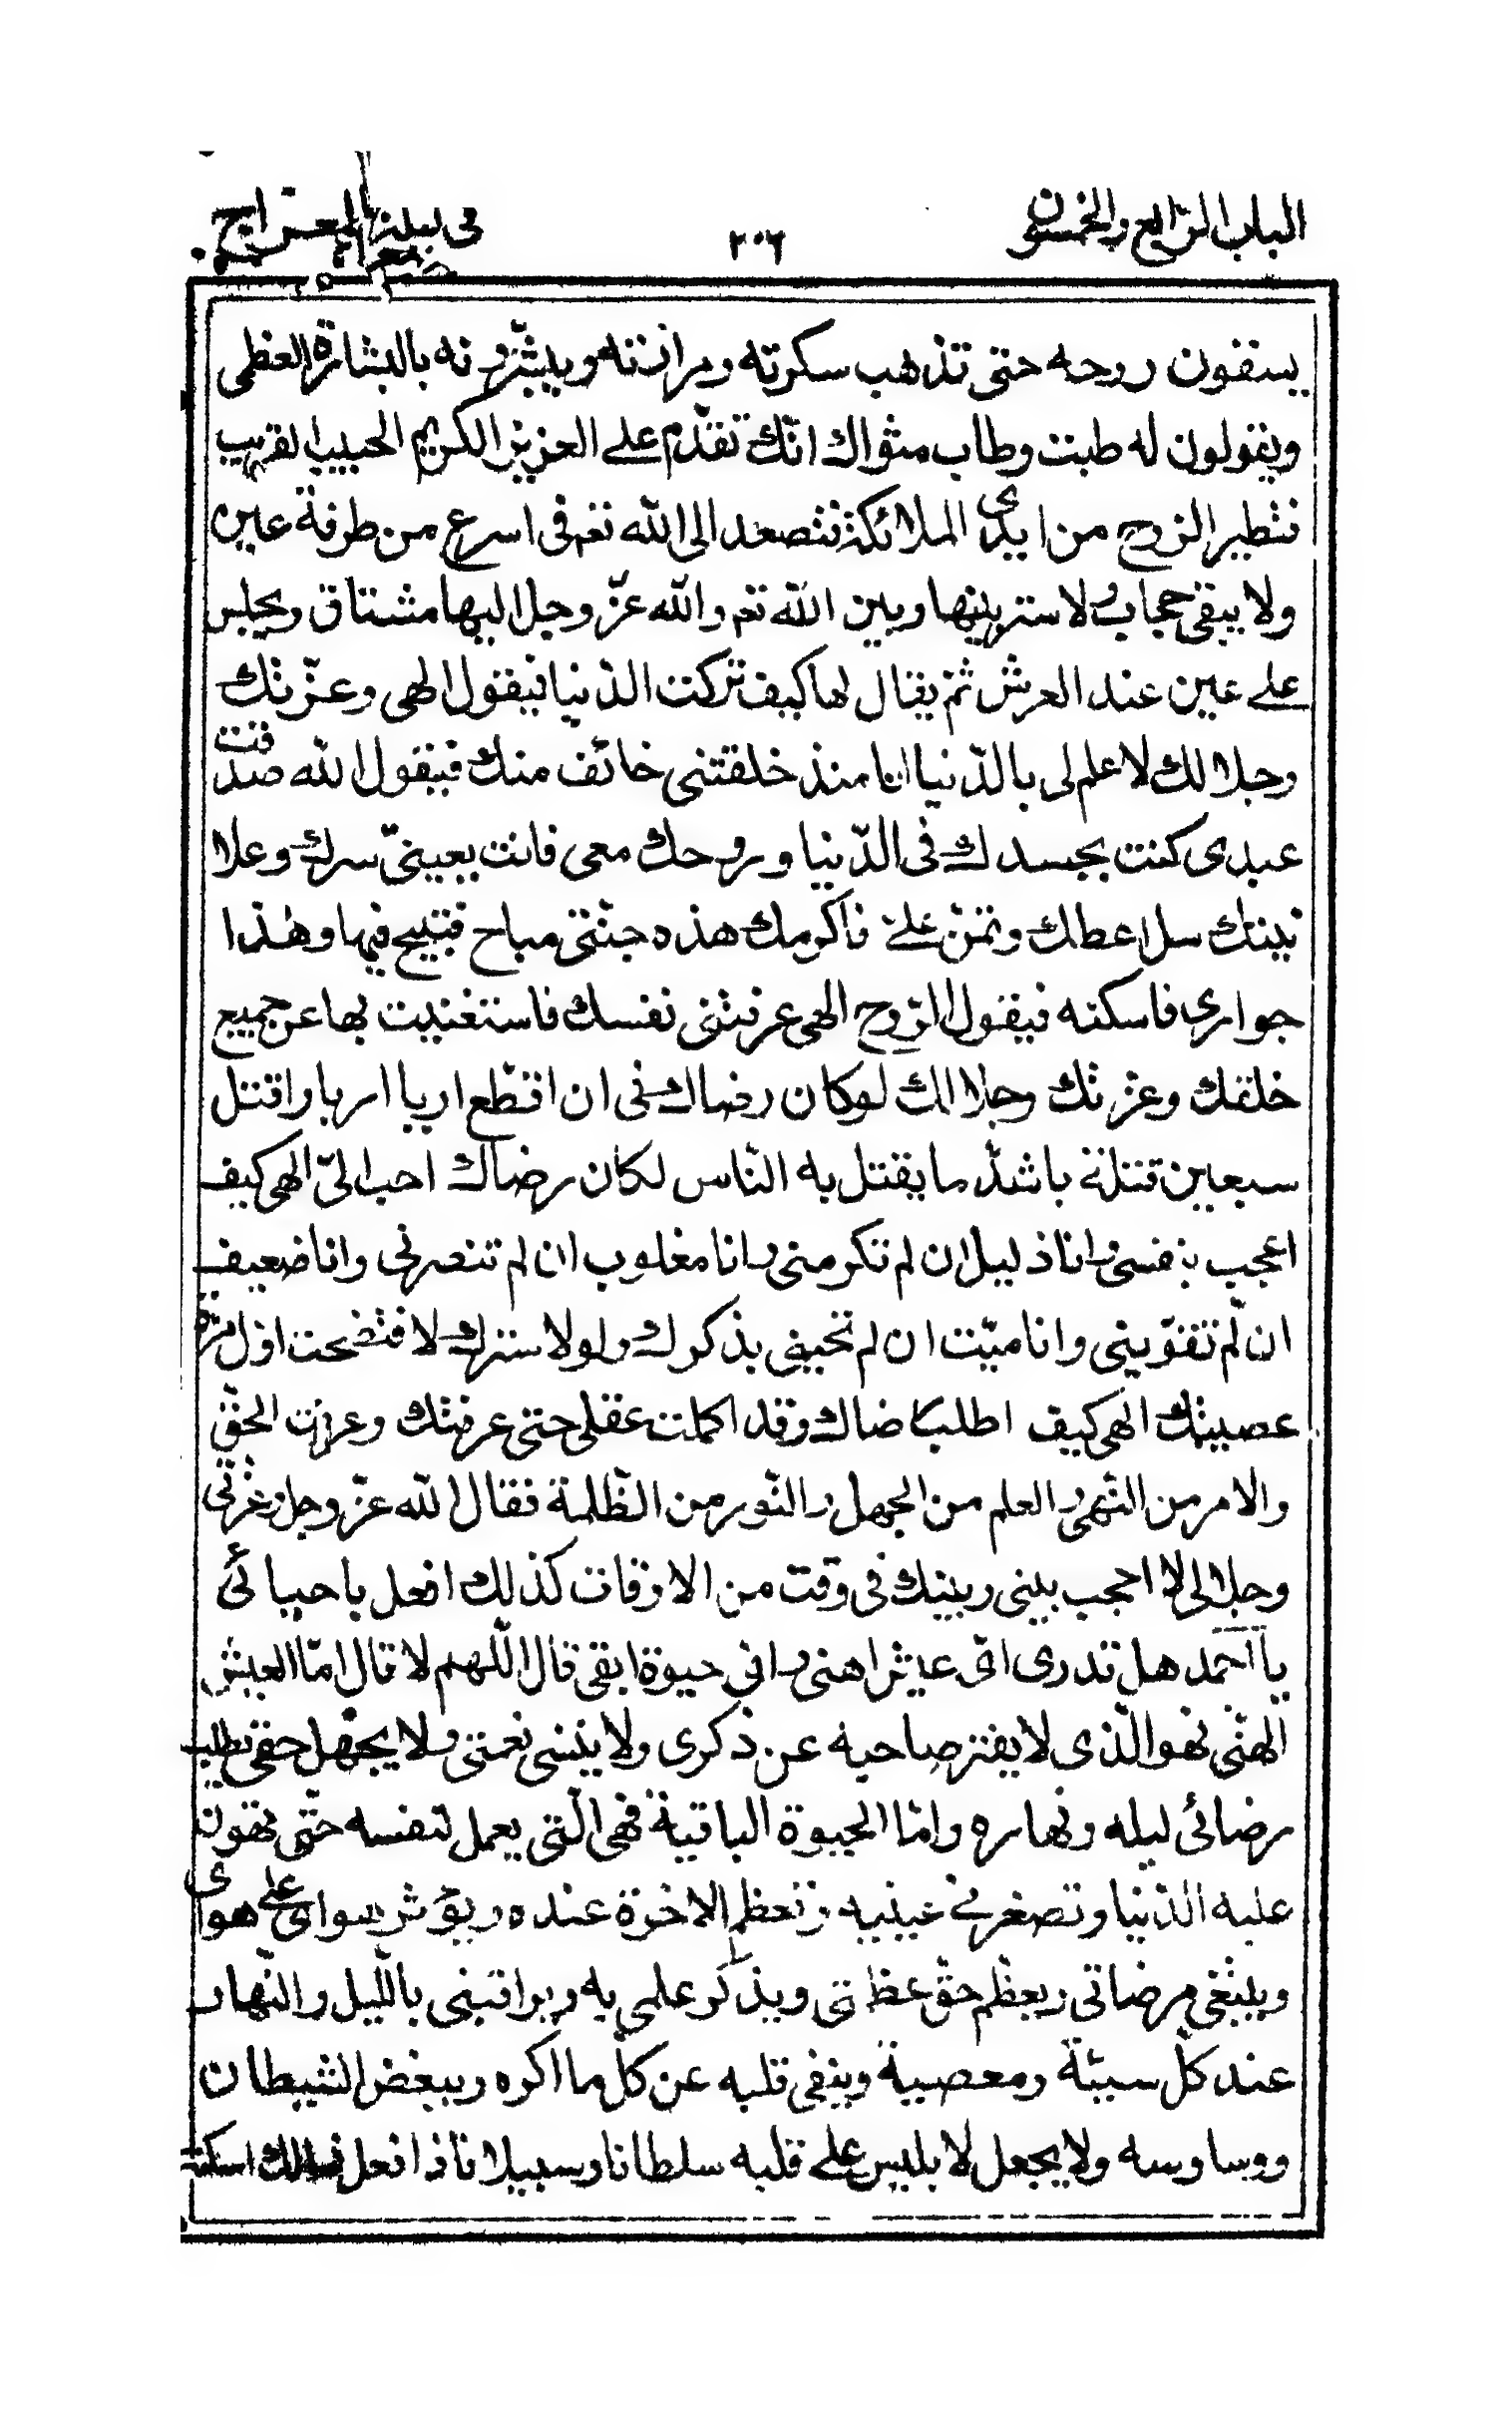 الباب الرابع والخمسون
٢٠٦
فى ليلة المعراج
يسقون روحه حتى تذهب سكرته ومرارته ويبشرونه بالبشارة العظمى
ويقولون له طبت وطاب مثواك انّك تقدّم على العزيز الكريم الحبيب القريب
فتطير الرّوح من ايدى الملائكة فتصعد الى الله تعم فى اسرع من طرفة عين
ولا يبقى حجاب ولا ستر بينها وبين الله تعم والله عزّ وجل اليها مشتاق ويجلس
على عين عند العرش ثمّ يقال لها كيف تركت الدّنيا فيقول الهى وعزّتك
وجلالك لا علم لى بالدّنيا انا منذ خلقتنى خائف منك فيقول الله صدقت
عبدى كنت بجسدك فى الدّنيا وروحك معى فانت بعينىّ سرك وعلا
نيتك سل اعطك وتمنّ علىّ فاكرمك هذه جنّتى مباح فتبيح فيها وهذا
جوارى فاسكنه فيقول الرّوح الهى عرفتنى نفسك فاستغنيت بها عن جميع
خلقك وعزّتك وجلالك لوكان رضاك فى ان اقطع اربا اربا واقتل
سبعين قتلة باشدّ ما يقتل به النّاس لكان رضاك احب الىّ الهى كيف
اعجب بنفسى وانا ذليل ان لم تكرمنى وانا مغلوب ان لم تنصرنى وانا ضعيف
ان لم تقوّينى وانا ميّت ان لم تحيينى بذكرك ولولا سترك لافتضحت اوّل مرّة
عصيتك الهى كيف اطلب رضاك وقد اكملت عقلى حتى عرفتك وعرفت الحقّ
والامر من النّهى والعلم من الجهل والنّور من الظّلمة فقال الله عزّ وجل وعزّتى
وجلالى لا احجب بينى وبينك فى وقت من الاوقات كذلك افعل باحبائى
يا احمد هل تدرى اىّ عيش اهنى واىّ حيوة ابقى قال اللّهم لا قال امّا العيش
الهنّى فهو الّذى لا يفتر صاحبه عن ذكرى ولا ينسى نعمتى ولا يجهل حقى يطلب
رضائى ليله ونهاره وامّا الحيوة الباقية فهى الّتى يعمل لنفسه حتّى تهون
عليه الدّنيا وتصغر فى عينيه وتعظم الاخرة عنده ويؤثر هواى على هواى
ويبتغى مرضاتى ويعظّم حقّ عظمتى ويذكر علمى به ويراقبنى باللّيل والنّهار
عند كلّ سيئة ومعصية وينفى قلبه عن كلّ ما اكره ويبغض الشيطان
ووساوسه ولا يجعل لابليس على قلبه سلطانا وسبيلا فاذا فعل ذلك اسكنت